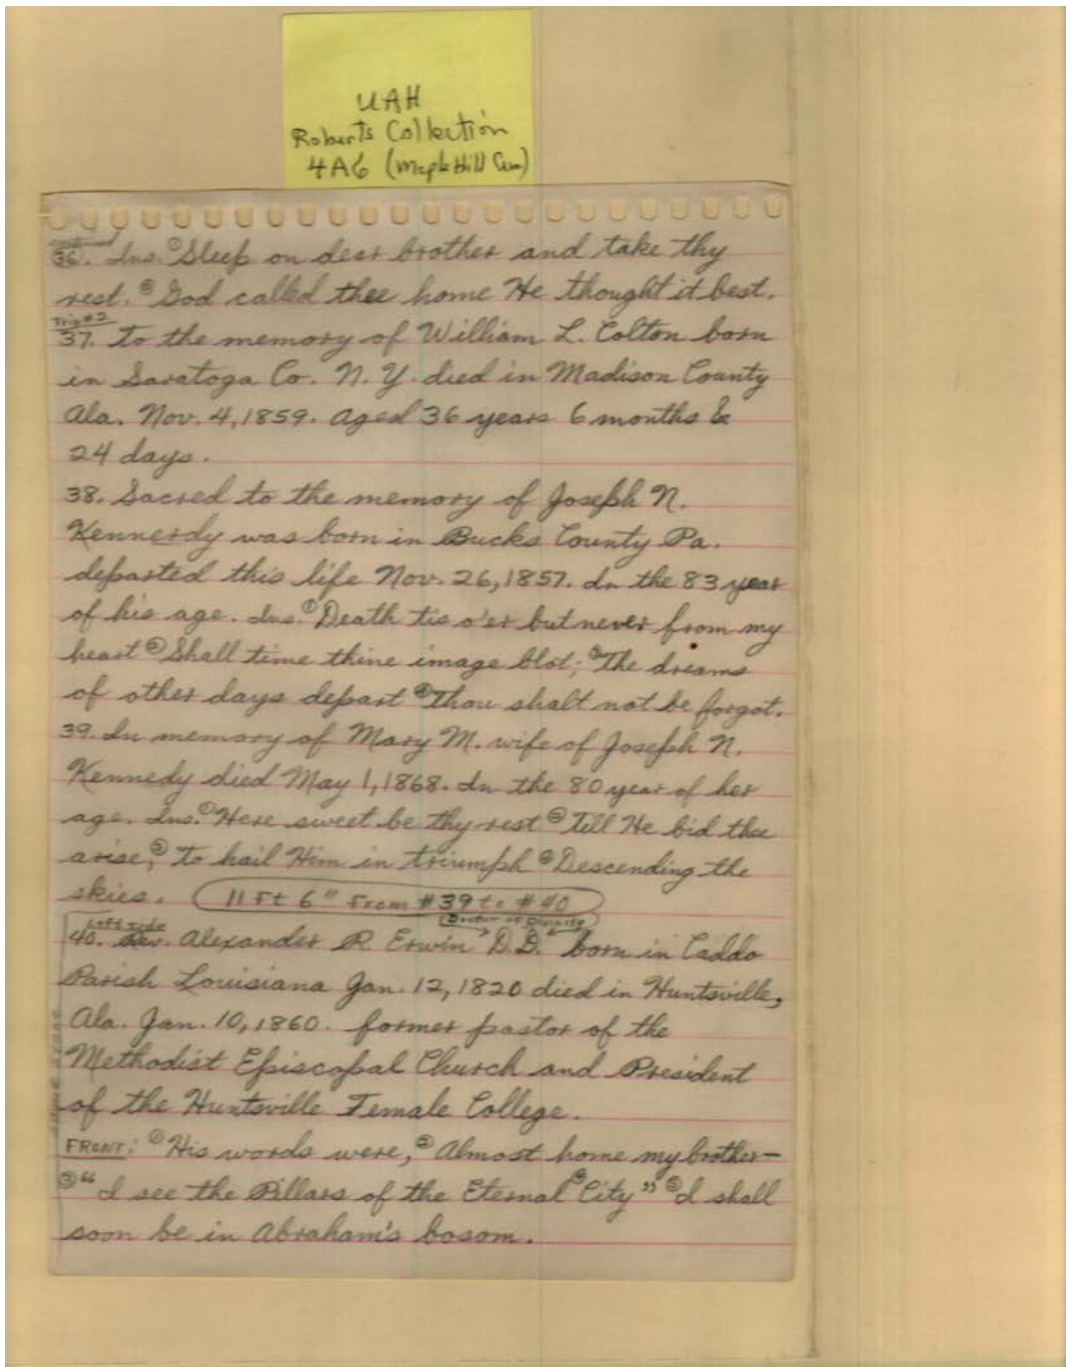 UAH
Roberts Collection
4A6 (Maple Hill Cem)
continued
36. Ins. ① Sleep on dear brother and take thy
rest. ② God called thee home He thought it best.
Trip #2
37. To the memory of William L. Colton born
in Saratoga Co. N.Y. died in Madison County
Ala. Nov. 4, 1859. Aged 36 years 6 months &
24 days.
38. Sacred to the memory of Joseph N.
Kennerdy was born in Bucks County Pa.
departed this life Nov. 26, 1857. In the 83 year
of his age. Ins. ① Death tis o'er but never from my
heart ② Shall time thine image blot; ③ The dreams
of other days depart ④ Thou shalt not be forgot.
39. In memory of Mary M. wife of Joseph N.
Kennedy died May 1, 1868. In the 80 year of her
age. Ins. ① Here sweet be thy rest ② Till He bid thee
arise, ③ To hail Him in triumph ④ Descending the
skies. 11 Ft 6" From #39 to #40
Left side Doctor of Divinity
40. Rev. Alexander R. Erwin D.D. born in Caddo
Parish Louisiana Jan. 12, 1820 died in Huntsville,
Ala. Jan. 10, 1860. former pastor of the
Methodist Episcopal Church and President
of the Huntsville Female College.
FRONT: ① His words were, ② Almost home my brother—
③ "I see the Pillars of the Eternal ④ City" ⑤ I shall
soon be in Abraham's bosom.